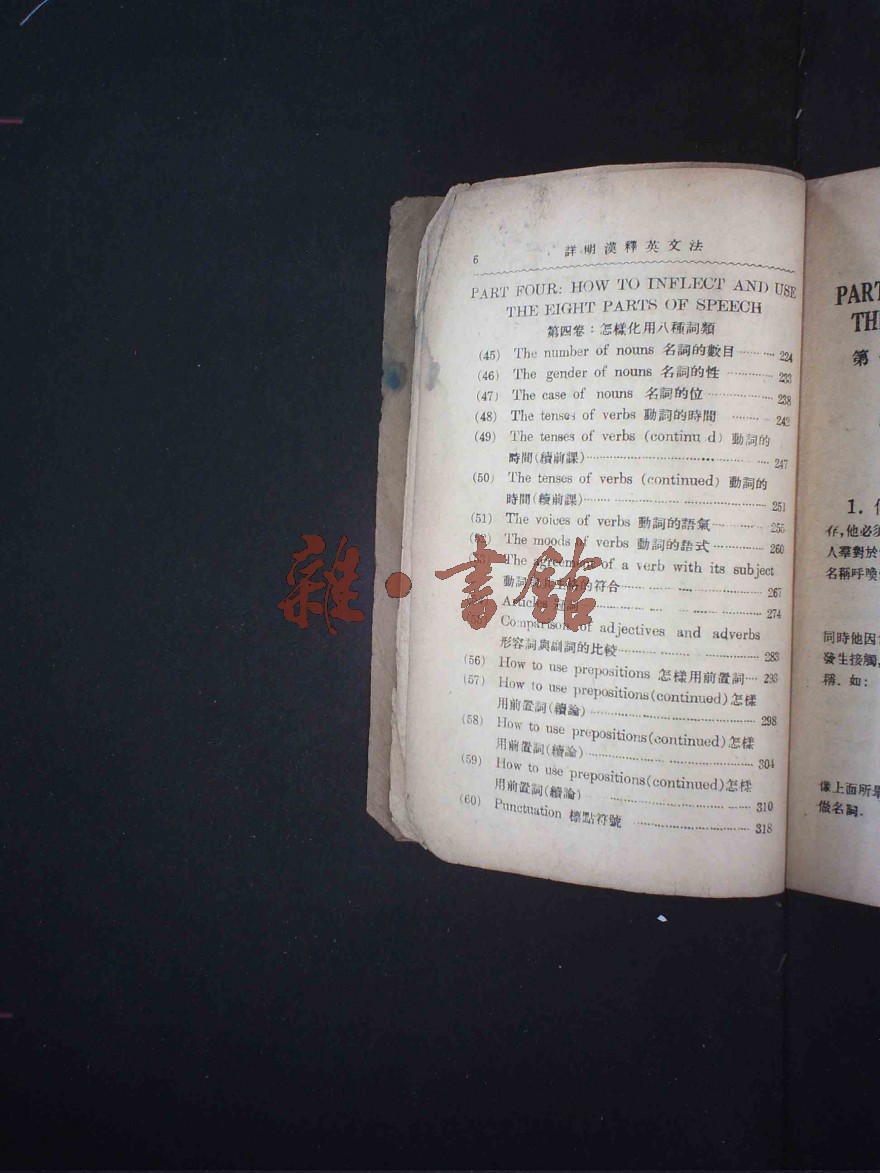 6 詳明漢釋英文法
PART FOUR: HOW TO INFLECT AND USE
THE EIGHT PARTS OF SPEECH
第四卷：怎樣化用八種詞類
(45) The number of nouns 名詞的數目 224
(46) The gender of nouns 名詞的性 233
(47) The case of nouns 名詞的位 238
(48) The tenses of verbs 動詞的時間 242
(49) The tenses of verbs (continu d) 動詞的
時間(續前課) 247
(50) The tenses of verbs (continued) 動詞的
時間(續前課) 251
(51) The voices of verbs 動詞的語氣 255
(52) The moods of verbs 動詞的語式 260
The agreement of a verb with its subject
動詞 的符合 267
Articles 274
Comparison of adjectives and adverbs
形容詞與副詞的比較 283
(56) How to use prepositions 怎樣用前置詞 293
(57) How to use prepositions(continued)怎樣
用前置詞(續論) 298
(58) How to use prepositions(continued)怎樣
用前置詞(續論) 304
(59) How to use prepositions(continued)怎樣
用前置詞(續論) 310
(60) Punctuation 標點符號 318
雜·書館
PART
TH
第
1.
存,他必須
人羣對於
名稱呼喚
同時他因
發生接觸,
稱. 如:
像上面所舉
做名詞.